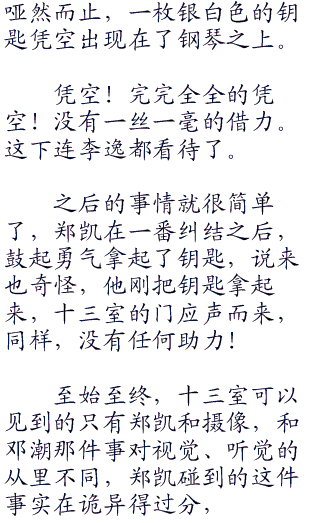 哑然而止，一枚银白色的钥
匙凭空出现在了钢琴之上。
凭空！完完全全的凭
空！没有一丝一毫的借力。
这下连李逸都看待了。
之后的事情就很简单
了，郑凯在一番纠结之后，
鼓起勇气拿起了钥匙，说来
也奇怪，他刚把钥匙拿起
来，十三室的门应声而来，
同样，没有任何助力！
至始至终，十三室可以
见到的只有郑凯和摄像，和
邓潮那件事对视觉、听觉的
从里不同，郑凯碰到的这件
事实在诡异得过分，